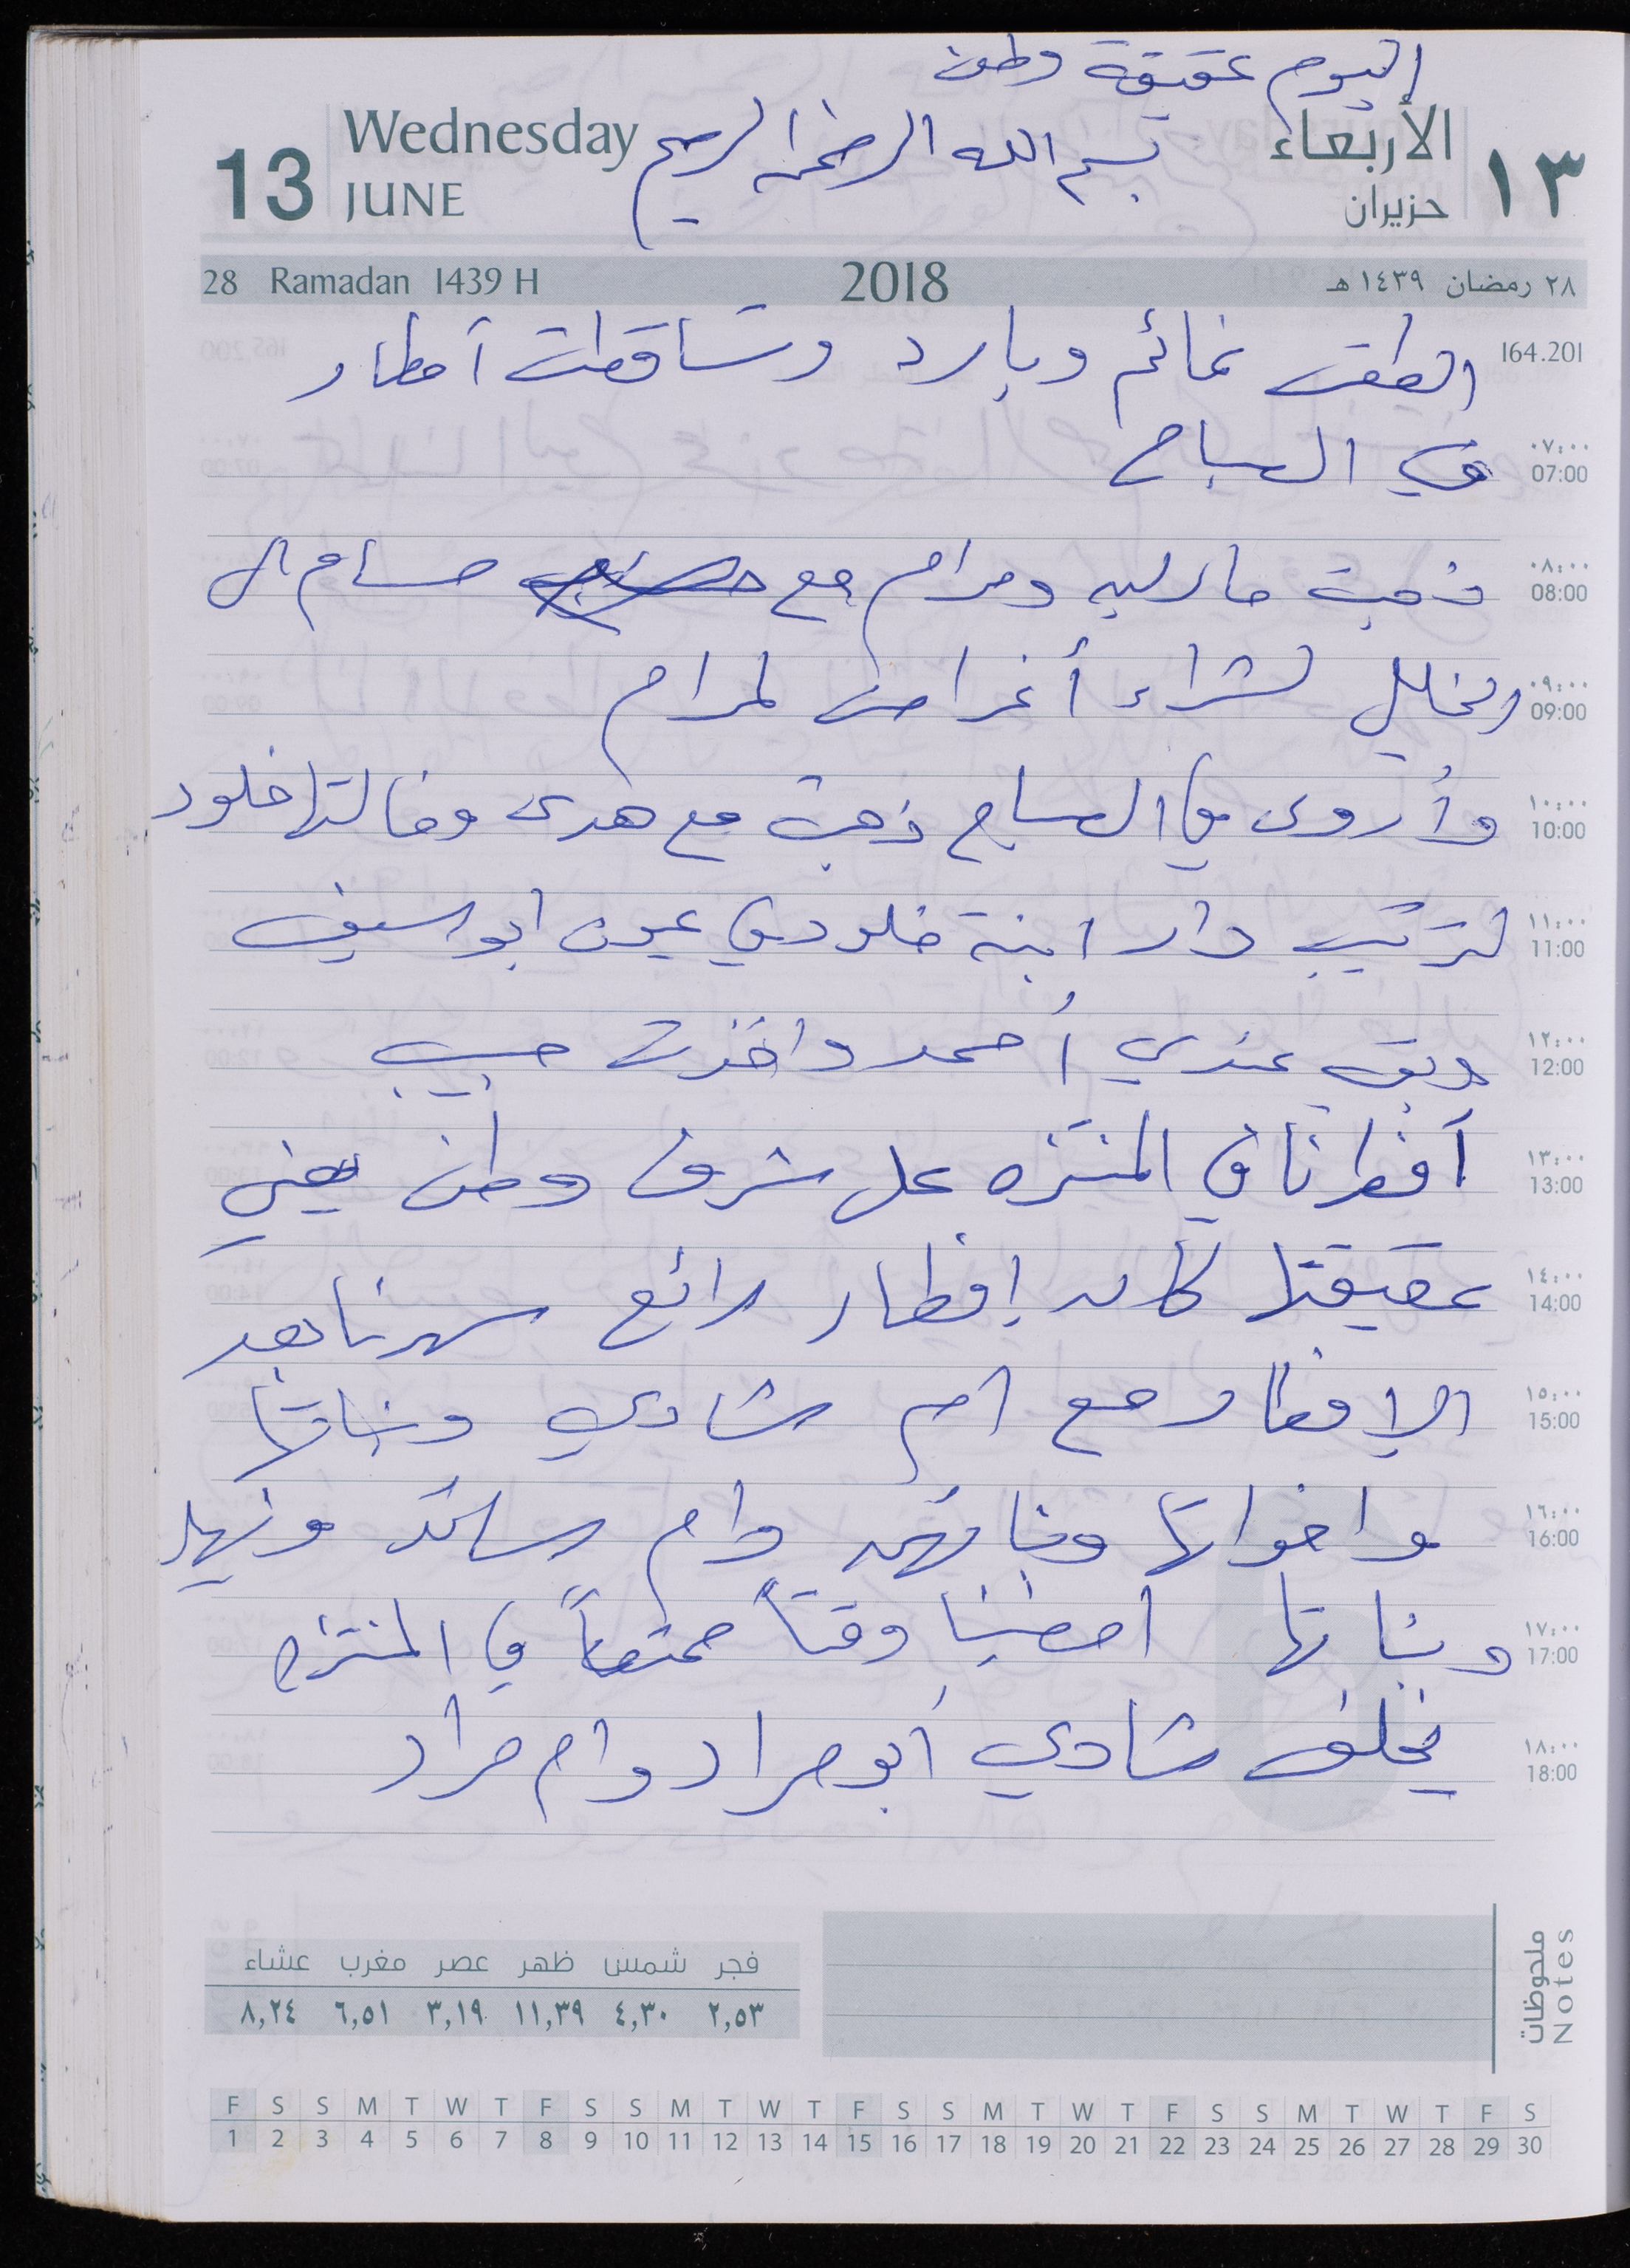 اليوم عقيقة وطن
13 Wednesday JUNE بسم الله الرحمن الرحيم الأربعاء حزيران ١٣
28 Ramadan 1439 H 2018 ٢٨ رمضان ١٤٣٩ هـ
164.201
الطقس غائم وبارد وتساقطت أمطار
٠٧:٠٠ 07:00
في الصباح
٠٨:٠٠ 08:00
ذهبت ماريه ومرام مع حسام ال
٠٩:٠٠ 09:00
الخليل لشراء أغراض لمرام
١٠:٠٠ 10:00
وأروى في الصباح ذهبت مع هدى وخالتها خلود
١١:٠٠ 11:00
لترتيب دار ابنة خلود في عيون ابو سيف
١٢:٠٠ 12:00
وبقي عندي أحمد واخذت حبيب
١٣:٠٠ 13:00
أفطرنا في المنتزه على شرف وطن يعني
١٤:٠٠ 14:00
عقيقتها كان إفطار رائع سهرنا بعد
١٥:٠٠ 15:00
الإفطار مع ام شادي وبناتها
١٦:٠٠ 16:00
واخواتها وبناتهن وام رسائد ونهيل
١٧:٠٠ 17:00
وبناتها امضينا وقتاً ممتعاً في المنتزه
١٨:٠٠ 18:00
يخلف شادي أبو مراد وام مراد
ملحوظات Notes
فجر شمس ظهر عصر مغرب عشاء
٢,٥٣ ٤,٣٠ ١١,٣٩ ٣,١٩ ٦,٥١ ٨,٢٤
F S S M T W T F S S M T W T F S S M T W T F S S M T W T F S
1 2 3 4 5 6 7 8 9 10 11 12 13 14 15 16 17 18 19 20 21 22 23 24 25 26 27 28 29 30